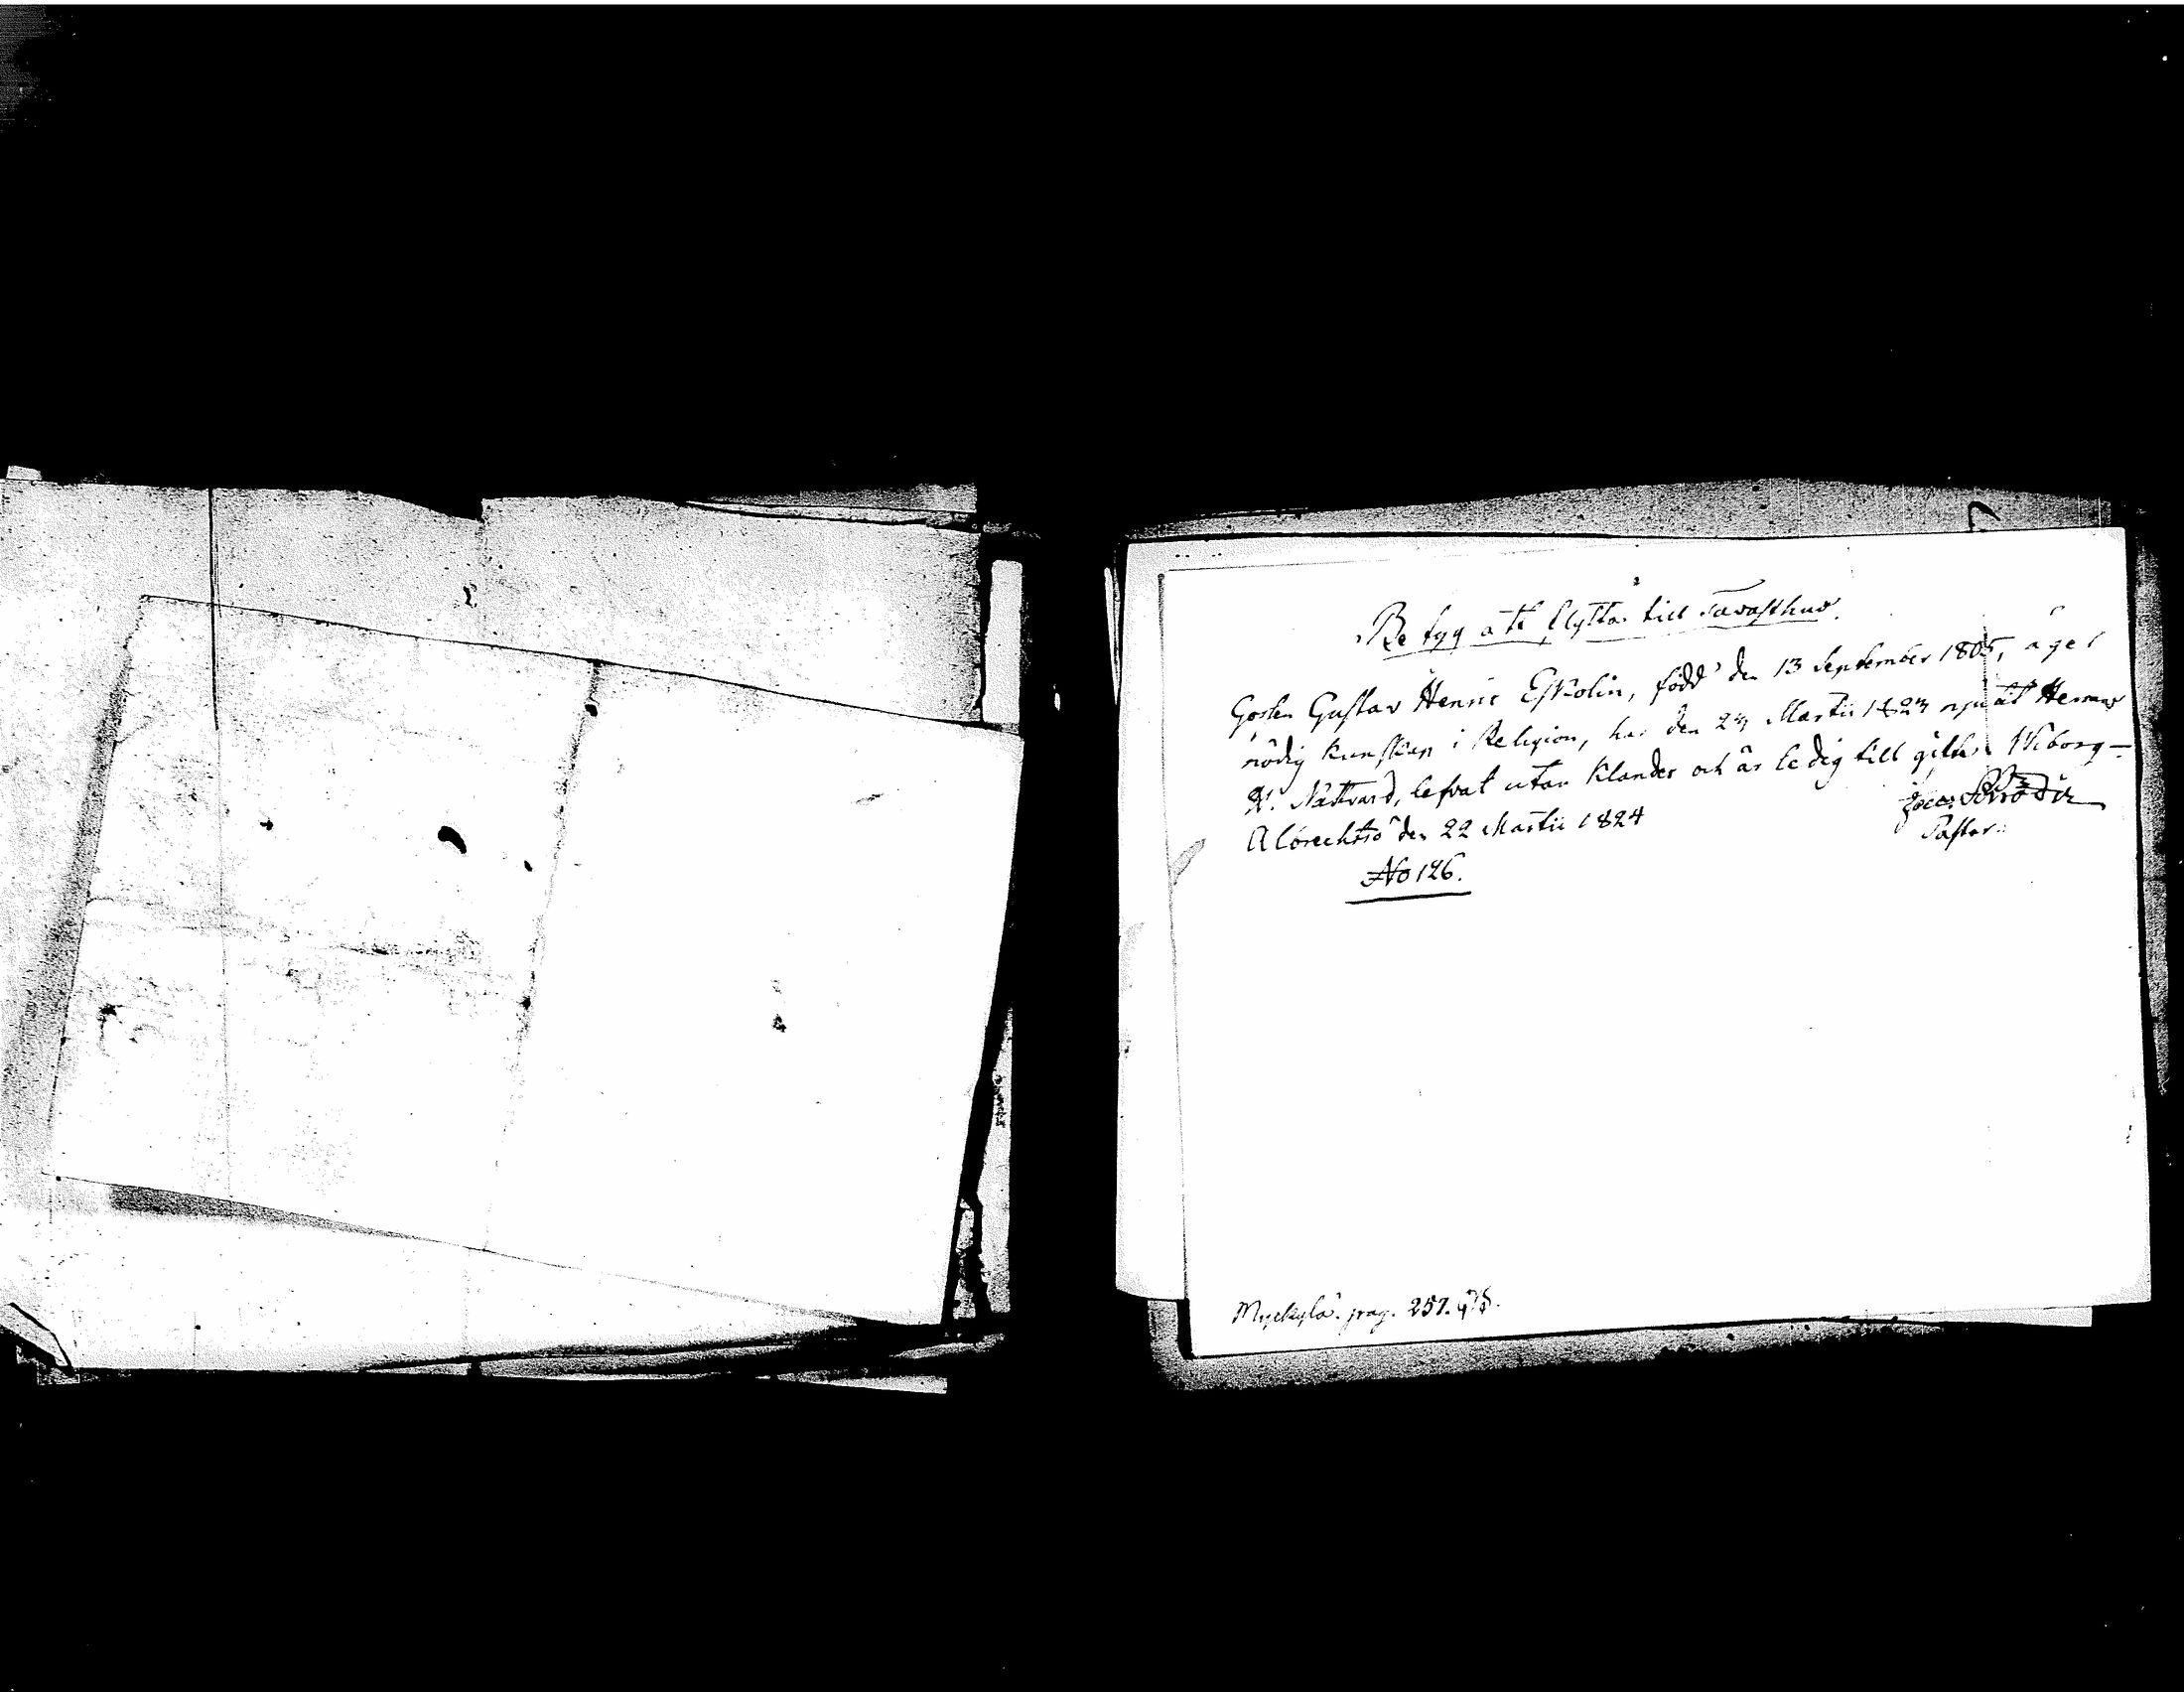 Betyg att flytta till Tavasthus.
Gossen Gustav Henric Eskolin, född den 13 September 1805, äger
nödig kunskap i Religion, har den 23 Martii 1823 njutit Herrans
H. Nattvard, lefvat utan klander och är ledig till gifte. Wiborg
Albrechtsö den 22 Martii 1824
Pastor
No 126.
Myckylä. pag. 257.